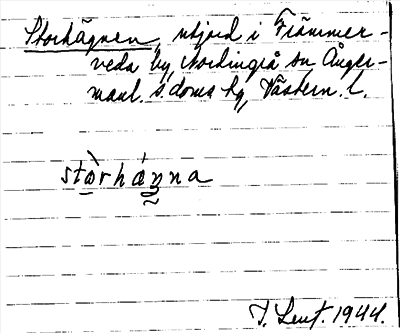 Storhägnen, utjord i Främmer-
veda by, Nordingrå sn Ånger-
manl. s. doms hg, Västern. l.
stòrhánna
J. Lent. 1944.